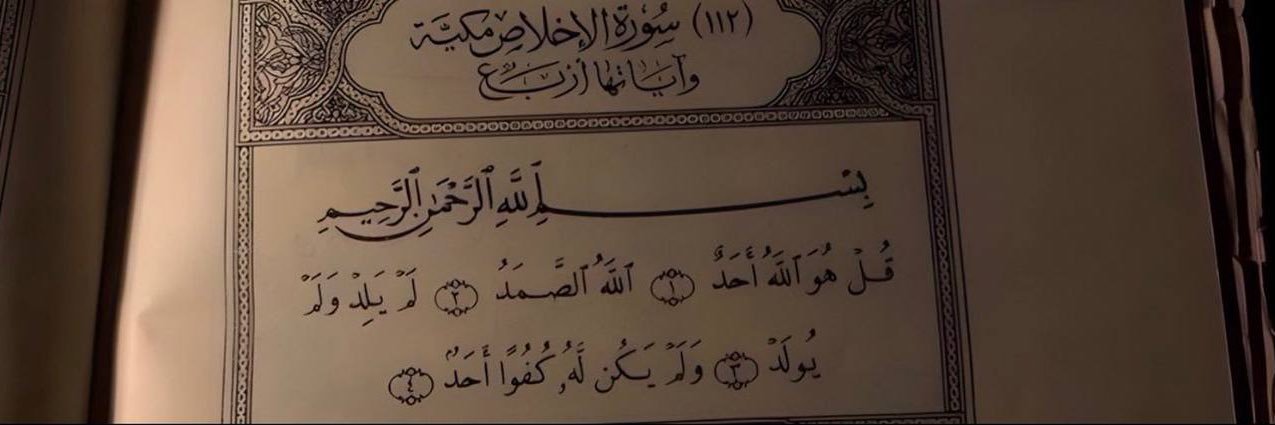 (١١٢) سُورَةُ الإِخْلَاصِ مَكِيَّة
وَآيَاتُهَا أَرْبَع
بِسْمِ ٱللَّهِ ٱلرَّحْمَٰنِ ٱلرَّحِيمِ
قُلْ هُوَ ٱللَّهُ أَحَدٌ ١ ٱللَّهُ ٱلصَّمَدُ ٢ لَمْ يَلِدْ وَلَمْ
يُولَدْ ٣ وَلَمْ يَكُن لَّهُۥ كُفُوًا أَحَدٌۢ ٤